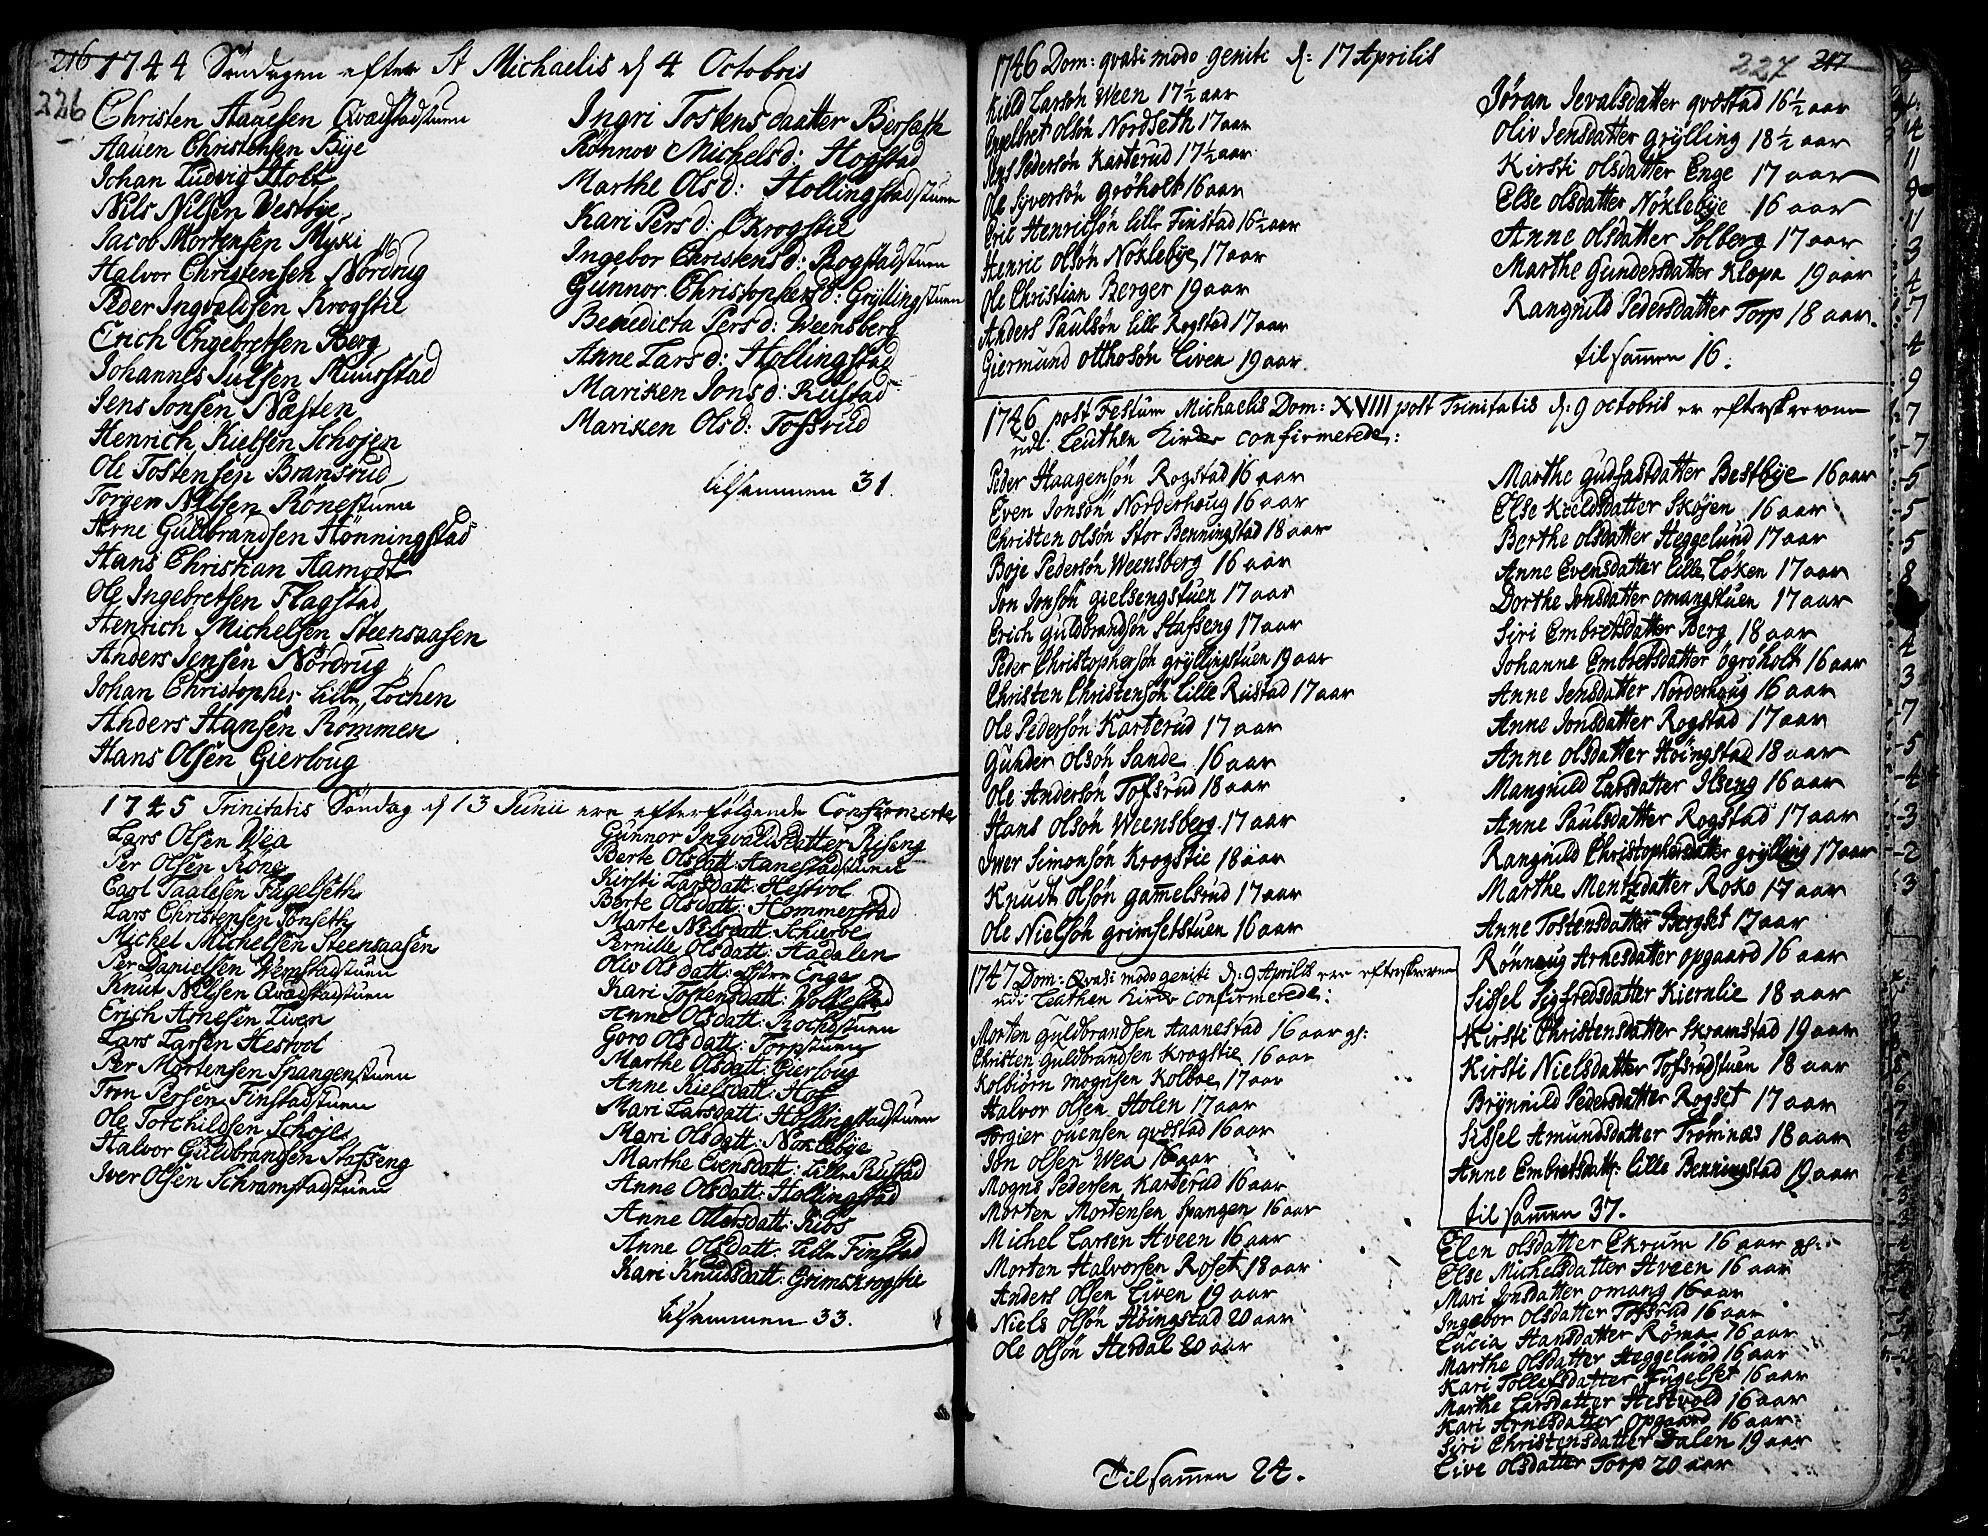 216
226
1744 Søndagen efter St Michaelis d 4 Octobris
Christen Haaesen Qvadstadstuen
Aauen Christensen Bye
Johan Ludvig Holt
Nils Nilsen Vestbye
Jacob Mortensen Myki
Halvor Christensen Nordrug
Peder Ingvaldsen Krogstie
Erich Engebretsen Berg
Johannes Julsen Muurstad
Jens Jonsen Næsten
Henrich Kielsen Schojen
Ole Tostensen Bransrud
Torgem Nilsen Rönestuen
Arne Gulbrandsen Hönningstad
Hans Christian Aamodt
Ole Ingebretsen Flagstad
Henrich Michelsen Steensaasen
Anders Jensen Nordrug
Johan Christopher Lille Löchen
Anders Hansen Rommen
Hans Olsen Gierloug
Ingri Tostens daatter Bersæth
Rönnov Michels d: Hogstad
Marthe Ols d: Hollingstadstuen
Kari Pers d: Krogstie
Ingebor Christens d: Rogstadstuen
Gunnor Christophers d: Gryllingstuen
Benedicta Pers d: Weensberg
Anne Lars d: Hollingstad
Mariken Jons d: Rustad
Mariken Ols d: Tofsrud
tilsammen 31.
1745 Trinitatis Søndag d 13 Junii ere efterfølgende Confirmerte
Lars Olsen Wea
Per Olsen Rong
Carl Paalsen Fugelseth
Lars Christensen Tonseth
Michel Michelsen Steensaasen
Per Danielsen Wemstadstuen
Knut Nilsen Qvadstadstuen
Erich Arnesen Liven
Lars Larsen Hestvol
Per Mortensen Spangenstuen
Tron Persen Finstadstuen
Ole Torchildsen Schoje
Halvor Guldbransen Stafseng
Iver Olsen Schramstadstuen
Gunnor Ingvaldsdatter Riseng
Berte Olsdatt: Hanestadstuen
Kirsti Larsdatt: Hestvol
Berte Olsdatt: Hommerstad
Marte Nilsdatt: Schierve
Pernille Olsdatt: Aadalen
Oliv Olsdatt: Enge
Kari Tostensdatt: Wollestad
Anne Olsdatt: Rochstuen
Goro Olsdatt: Torpstuen
Marthe Olsdatt: Gierloug
Anne Kielsdatt: Hof
Mari Larsdatt: Hollingstadstuen
Mari Olsdatt: Noklebye
Marthe Evensdatt: Lille Rustad
Anne Olsdatt: Hollingstad
Anne Ollersdatt: Kibs
Anne Olsdatt: Lille Finstad
Kari Knudsdatt: Grimskrogstie
tilsammen 33.
227 217
1746 Dom: qvasi modo geniti d: 17 Aprilis
Kield Larsön Ween 17½ aar
Engelbret olsön Nordseth 17 aar
Jens Pedersön Karterud 17½ aar
Ole Syversön Gröholt 16 aar
Eric Henricsön lille Finstad 16½ aar
Henric olsön Nöklebye 17 aar
Ole Christian Berger 19 aar
Anders Paulsön lille Rogstad 17 aar
Giermund otthosön Liven 19 aar.
Jøran Jevalsdatter qvæstad 16½ aar
Oliv Jensdatter Grylling 18½ aar
Kirsti olsdatter Enge 17 aar
Else olsdatter Nöklebye 16 aar
Anne olsdatter Solberg 17 aar
Marthe Gundersdatter Klopa 19 aar
Rangnild Pedersdatter Torp 18 aar.
til samen 16.
1746 post Festum Michaelis Dom: XVIII post Trinitatis d: 9 octobris er efterskrevne
udi Leuthen Kirke confirmerede:
Peder Haagensön Rogstad 16 aar
Even Jonsön Norderhoug 16 aar
Christen olsön Stor Benningstad 18 aar
Boje Pedersön Weensberg 16 aar
Jon Jonsön gielsengstuen 17 aar
Erich guldbrandsön Stafseng 17 aar
Peder Christophersön gryllingstuen 19 aar
Christen Christensön Lille Rustad 17 aar
Ole Pedersön Karterud 17 aar
Gunder olsön Sande 16 aar
Ole Andersön Tofsrud 18 aar
Hans olsön Weensberg 17 aar
Iwer Simonsön Krogstie 18 aar
Knudt olsön gamelsrud 17 aar
Ole Nielsön grimsetstuen 16 aar
Marthe gudfastdatter Bestbye 16 aar
Else Kieldsdatter Sköjen 16 aar
Berthe olsdatter Heggelund 17 aar
Anne Evensdatter lille Löken 17 aar
Dorthe Jonsdatter omangstuen 17 aar
Siri Embretsdatter Berg 18 aar
Johanne Embretsdatter ögröholt 16 aar
Anne Jensdatter Norderhoug 16 aar
Anne Jonsdatter Rogstad 17 aar
Anne olsdatter Hoingstad 18 aar
Mangnild Larsdatter Ilseng 16 aar
Anne Paulsdatter Rogstad 17 aar
Rangnild Christophersdatter grylling 17 aar
Marthe Mentzdatter Roko 17 aar
Anne Tostensdatter Bergset 17 aar
Rönnaug Arnesdatter opgaard 16 aar
Sissel Sigfredsdatter Kiernlie 18 aar
Kirsti Christensdatter Skramstad 19 aar
Kirsti Nielsdatter Tofsrudstuen 18 aar
Brynnild Pedersdatter Rogset 17 aar
Sissel Amundsdatter Trömnæs 18 aar
Anne Embretsdatt: lille Benningstad 19 aar
til samen 37.
1747 Dom: Qvasi modo geniti d: 9 Aprilis ere efterskrevne
udi Leuthen Kirke confirmerede:
Morten Guldbrandsen Haanestad 16 aar gl:
Christen Guldbrandsen Krogstie 16 aar
Kolbiörn Mognsen Kolboe 17 aar
Halvor Olsen Holen 17 aar
Torgier ouensen qvæstad 16 aar
Jon Olsen Wea 16 aar
Mogns Pedersen Karderud 16 aar
Morten Mortensen Spangen 16 aar
Michel Larsen Hveen 16 aar
Morten Halvorsen Roset 18 aar
Anders Olsen Liven 19 aar
Niels olsön Höingstad 20 aar
Ole olsön Herdal 20 aar
Elen olsdatter Ekrum 16 aar gl:
Else Michelsdatter Hveen 16 aar
Mari Jonsdatter omang 16 aar
Ingebor olsdatter Tofsrud 16 aar
Lucia Hansdatter Röma 16 aar
Marthe olsdatter Heggelund 16 aar
Kari Tollefsdatter Fugelset 16 aar
Marthe Larsdatter Hestvold 16 aar
Kari Arnesdatter Opgaard 16 aar
Siri Christensdatter Dalen 19 aar
Live olsdatter Torp 20 aar
Til samen 24.